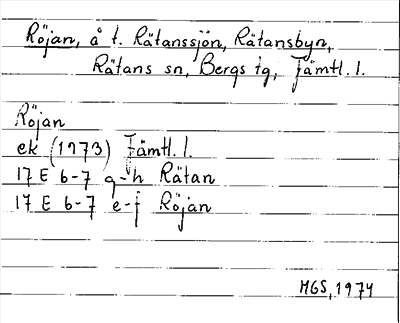 Röjan, å t. Rätanssjön, Rätansbyn,
Rätans sn, Bergs tg, Jämtl. l.
Röjan
ek (1973) Jämtl. l.
17 E 6-7 g-h Rätan
17 E 6-7 e-j Röjan
MGS, 1974